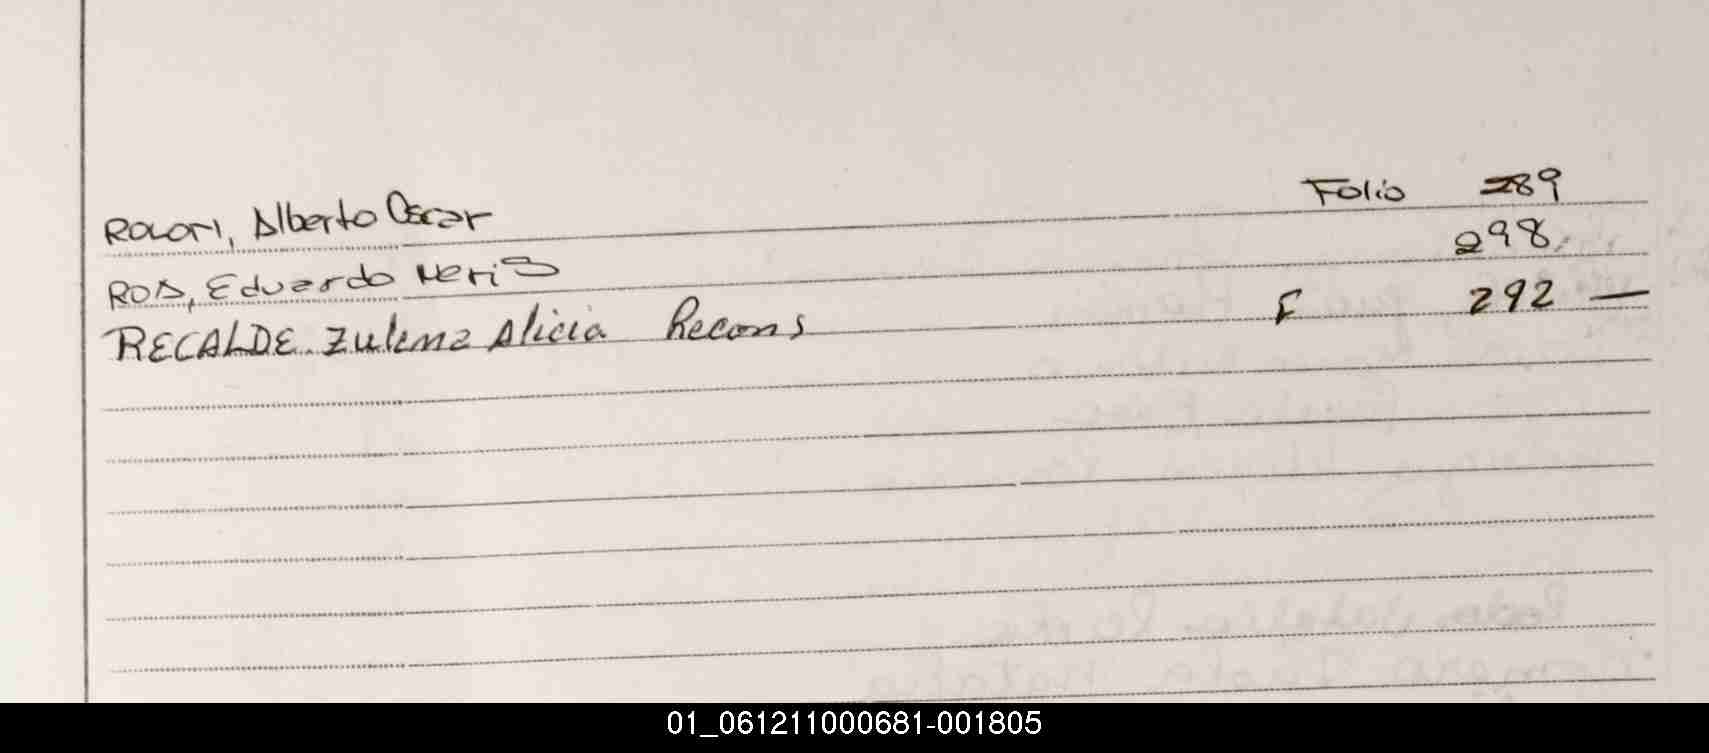 ROLORI, Alberto Oscar Folio 289
ROA, Eduardo Neris 298
RECALDE. Zulema Alicia Recons F 292 —
01_061211000681-001805